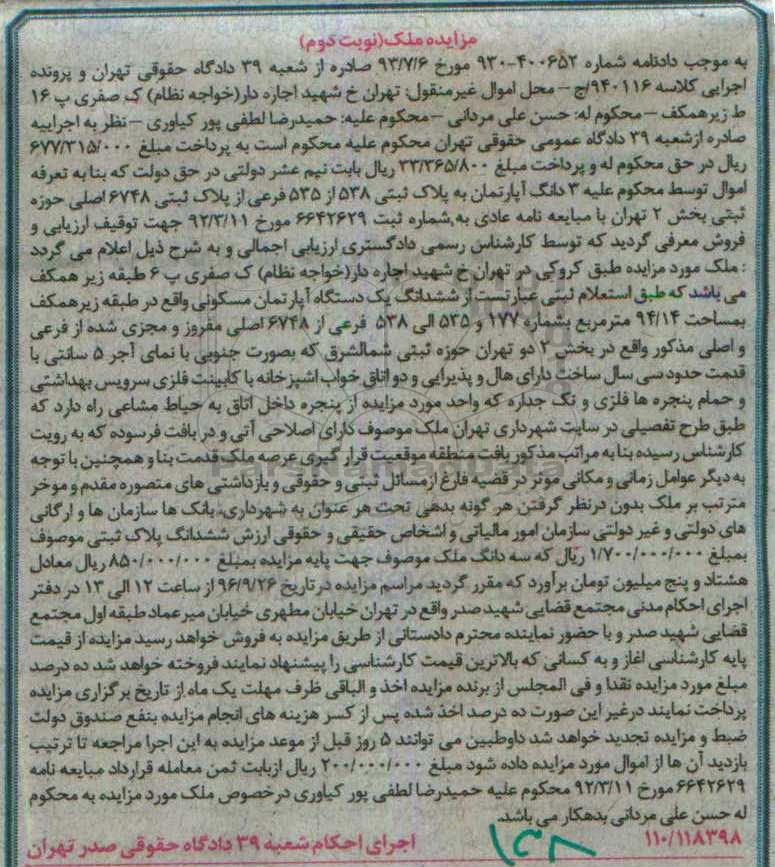 مزایده ملک(نوبت دوم)
به موجب دادنامه شماره ۴۰۰۶۵۲-۹۳۰ مورخ ۹۳/۷/۶ صادره از شعبه ۳۹ دادگاه حقوقی تهران و پرونده
اجرایی کلاسه ۹۴۰۱۱۶/ج – محل اموال غیرمنقول: تهران خ شهید اجاره دار(خواجه نظام) ک صفری پ ۱۶
ط زیرهمکف – محکوم له: حسن علی مردانی – محکوم علیه: حمیدرضا لطفی پور کیاوری – نظر به اجراییه
صادره ازشعبه ۳۹ دادگاه عمومی حقوقی تهران محکوم علیه محکوم است به پرداخت مبلغ ۶۷۷/۳۱۵/۰۰۰
ریال در حق محکوم له و پرداخت مبلغ ۳۳/۳۶۵/۸۰۰ ریال بابت نیم عشر دولتی در حق دولت که بنا به تعرفه
اموال توسط محکوم علیه ۳ دانگ آپارتمان به پلاک ثبتی ۵۳۸ از ۵۳۵ فرعی از پلاک ثبتی ۶۷۴۸ اصلی حوزه
ثبتی بخش ۲ تهران با مبایعه نامه عادی به شماره ثبت ۶۶۴۲۶۲۹ مورخ ۹۲/۳/۱۱ جهت توقیف ارزیابی و
فروش معرفی گردید که توسط کارشناس رسمی دادگستری ارزیابی اجمالی و به شرح ذیل اعلام می گردد
: ملک مورد مزایده طبق کروکی در تهران خ شهید اجاره دار(خواجه نظام) ک صفری پ ۶ طبقه زیر همکف
می باشد که طبق استعلام ثبتی عبارتست از ششدانگ یک دستگاه آپارتمان مسکونی واقع در طبقه زیرهمکف
بمساحت ۹۴/۱۴ مترمربع بشماره ۱۷۷ و ۵۳۵ الی ۵۳۸ فرعی از ۶۷۴۸ اصلی مفروز و مجزی شده از فرعی
و اصلی مذکور واقع در بخش ۲ دو تهران حوزه ثبتی شمالشرق که بصورت جنوبی با نمای آجر ۵ سانتی با
قدمت حدود سی سال ساخت دارای هال و پذیرایی و دو اتاق خواب اشپزخانه با کابینت فلزی سرویس بهداشتی
و حمام پنجره ها فلزی و تک جداره که واحد مورد مزایده از پنجره داخل اتاق به حیاط مشاعی راه دارد که
طبق طرح تفصیلی در سایت شهرداری تهران ملک موصوف دارای اصلاحی آتی و در بافت فرسوده که به رویت
کارشناس رسیده بنا به مراتب مذکور بافت منطقه موقعیت قرار گیری عرصه ملک قدمت بنا و همچنین با توجه
به دیگر عوامل زمانی و مکانی موثر در قضیه فارغ ازمسائل ثبتی و حقوقی و بازداشتی های متصوره مقدم و موخر
مترتب بر ملک بدون درنظر گرفتن هر گونه بدهی تحت هر عنوان به شهرداری، بانک ها سازمان ها و ارگانی
های دولتی و غیر دولتی سازمان امور مالیاتی و اشخاص حقیقی و حقوقی ارزش ششدانگ پلاک ثبتی موصوف
بمبلغ ۱/۷۰۰/۰۰۰/۰۰۰ ریال که سه دانگ ملک موصوف جهت پایه مزایده بمبلغ ۸۵۰/۰۰۰/۰۰۰ ریال معادل
هشتاد و پنج میلیون تومان برآورد که مقرر گردید مراسم مزایده در تاریخ ۹۶/۹/۲۶ از ساعت ۱۲ الی ۱۳ در دفتر
اجرای احکام مدنی مجتمع قضایی شهید صدر واقع در تهران خیابان مطهری خیابان میرعماد طبقه اول مجتمع
قضایی شهید صدر و با حضور نماینده محترم دادستانی از طریق مزایده به فروش خواهد رسید مزایده از قیمت
پایه کارشناسی اغاز و به کسانی که بالاترین قیمت کارشناسی را پیشنهاد نمایند فروخته خواهد شد ده درصد
مبلغ مورد مزایده نقدا و فی المجلس از برنده مزایده اخذ و الباقی ظرف مهلت یک ماه از تاریخ برگزاری مزایده
پرداخت نمایند درغیر این صورت ده درصد اخذ شده پس از کسر هزینه های انجام مزایده بنفع صندوق دولت
ضبط و مزایده تجدید خواهد شد داوطلبین می توانند ۵ روز قبل از موعد مزایده به این اجرا مراجعه تا ترتیب
بازدید آن ها از اموال مورد مزایده داده شود مبلغ ۲۰۰/۰۰۰/۰۰۰ ریال ازبابت ثمن معامله قرارداد مبایعه نامه
۶۶۴۲۶۲۹ مورخ ۹۲/۳/۱۱ محکوم علیه حمیدرضا لطفی پور کیاوری درخصوص ملک مورد مزایده به محکوم
له حسن علی مردانی بدهکار می باشد.
۱۱۰/۱۱۸۳۹۸ اجرای احکام شعبه ۳۹ دادگاه حقوقی صدر تهران